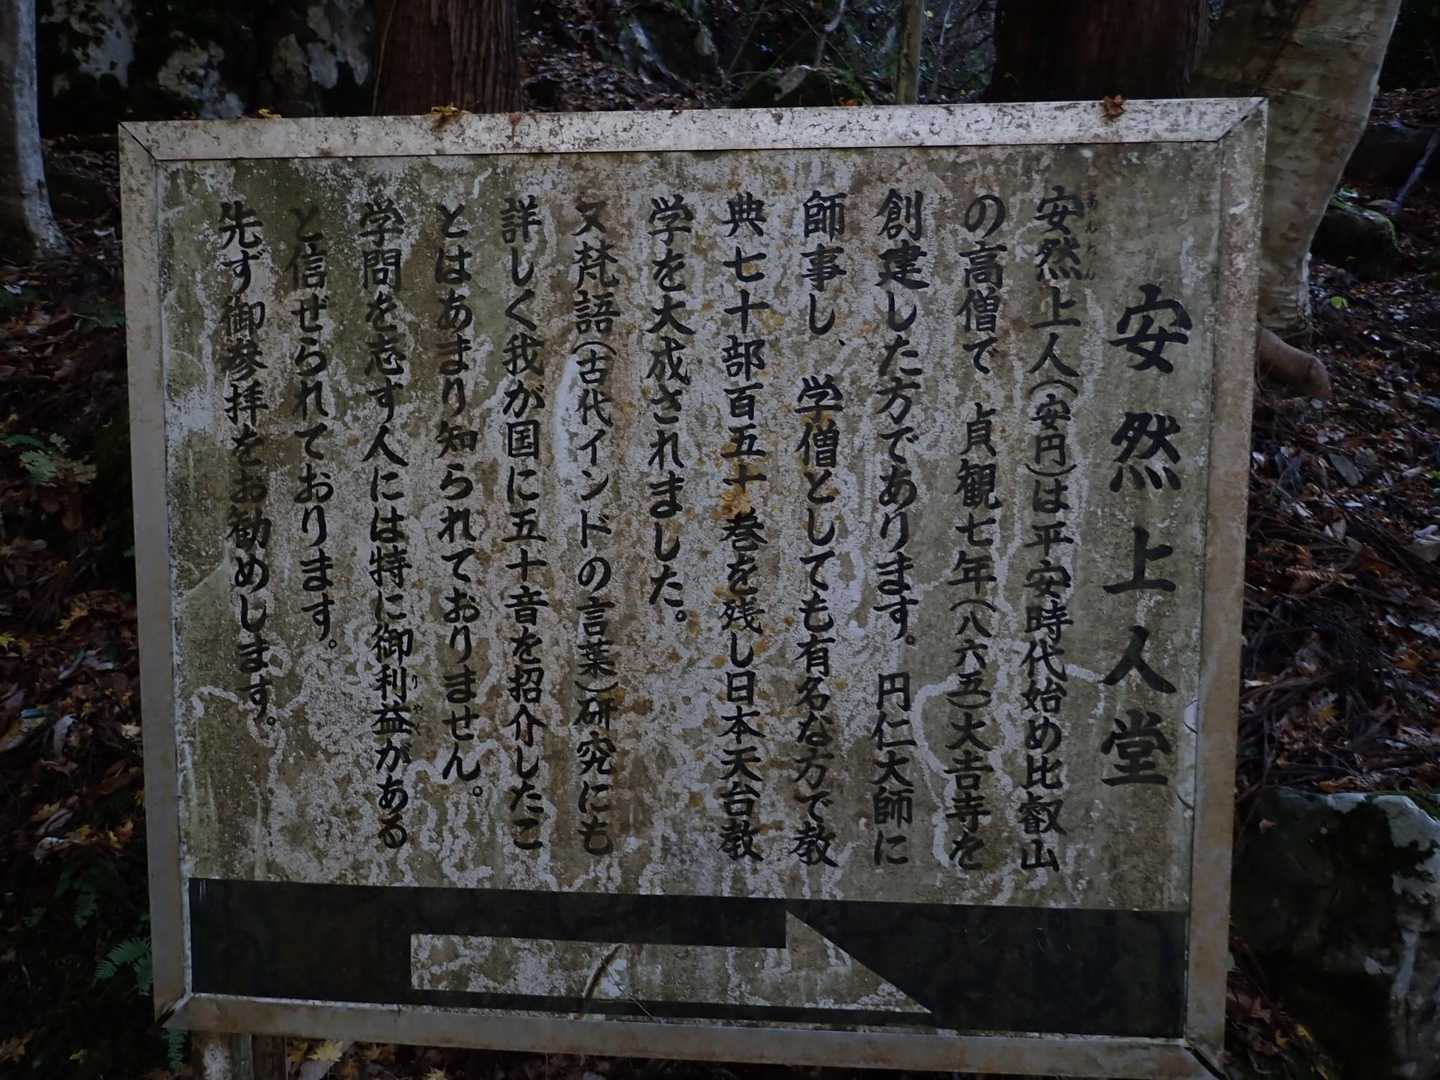 安然上人堂
安然上人(安円)は平安時代始め比叡山
の高僧で 貞観七年(八六五)大吉寺を
創建した方であります。円仁大師に
師事し、学僧としても有名な方で教
典七十部百五十巻を残し日本天台教
学を大成されました。
又梵語(古代インドの言葉)研究にも
詳しく我が国に五十音を招介したこ
とはあまり知られておりません。
学問を志す人には特に御利益がある
と信ぜられております。
先ず御参拝をお勧めします。